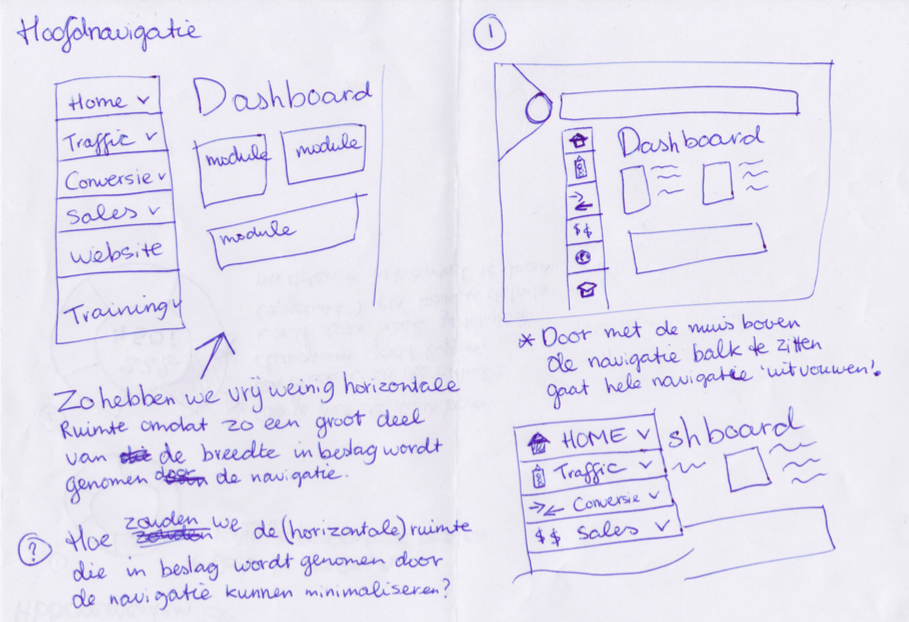 Hoofdnavigatie
Home ˅
Traffic ˅
Conversie ˅
Sales ˅
Website
Training ˅
Dashboard
module
module
module
Zo hebben we vrij weinig horizontale
Ruimte omdat zo een groot deel
van de breedte in beslag wordt
genomen door de navigatie.
? Hoe zouden we de (horizontale) ruimte
die in beslag wordt genomen door
de navigatie kunnen minimaliseren?
1
Dashboard
$$
* Door met de muis boven
de navigatie balk te zitten
gaat hele navigatie 'uitvouwen'.
HOME ˅
Traffic ˅
Conversie ˅
$$ Sales ˅
shboard